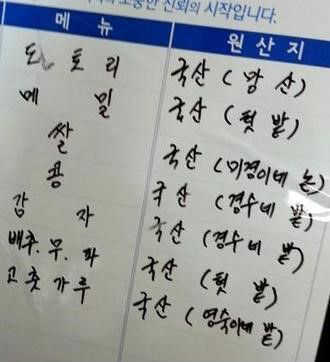 소중한 신뢰의 시작입니다.
메뉴 원산지
도토리 국산 (앞산)
메밀 국산 (텃밭)
쌀 국산 (미경이네 논)
콩 국산 (경수네 밭)
감자 국산 (경수네 밭)
배추.무.파 국산 (텃밭)
고춧가루 국산 (영숙이네 밭)